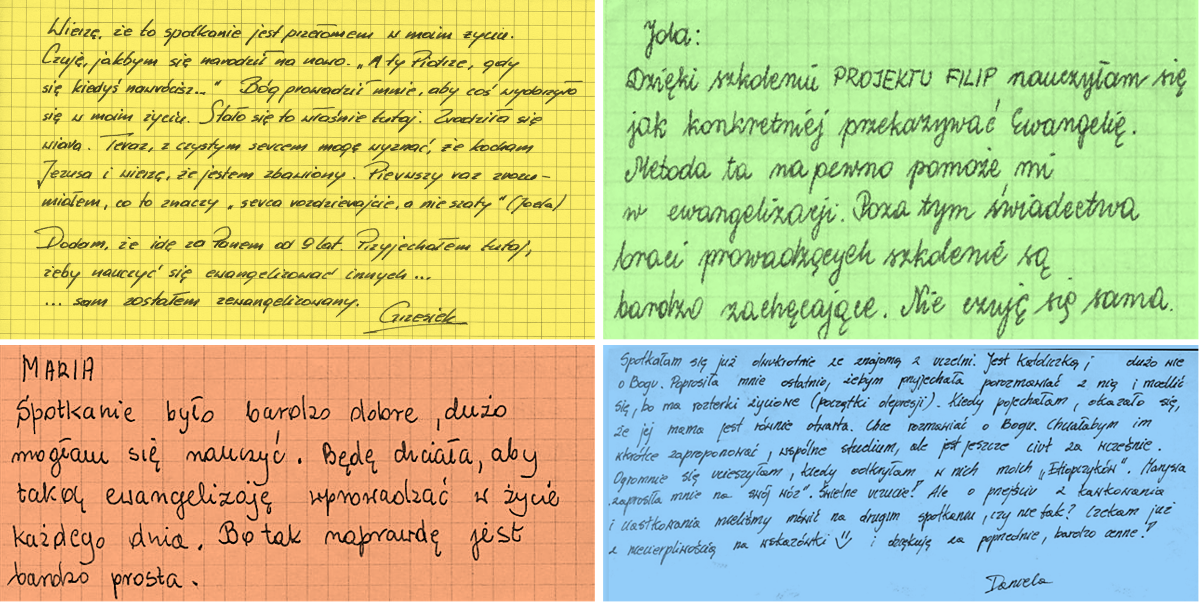 Wierzę, że to spotkanie jest przełomem w moim życiu.
Czuję, jakbym się narodził na nowo. „A ty Piotrze, gdy
się kiedyś nawrócisz..." Bóg prowadził mnie, aby coś wydarzyło
się w moim życiu. Stało się to właśnie tutaj. Zrodziła się
wiara. Teraz, z czystym sercem mogę wyznać, że kocham
Jezusa i wierzę, że jestem zbawiony. Pierwszy raz zrozu-
miałem, co to znaczy „serca rozdzierajcie, a nie szaty" (Joela)
Dodam, że idę za Panem od 9 lat. Przyjechałem tutaj,
żeby nauczyć się ewangelizować innych ...
... sam zostałem zewangelizowany.
Grzesiek
Jola:
Dzięki szkoleniu PROJEKTU FILIP nauczyłam się
jak konkretniej przekazywać Ewangelię.
Metoda ta na pewno pomoże mi
w ewangelizacji. Poza tym świadectwa
braci prowadzących szkolenie są
bardzo zachęcające. Nie czuję się sama.
MARIA
Spotkanie było bardzo dobre, dużo
mogłam się nauczyć. Będę chciała, aby
taką ewangelizację wprowadzać w życie
każdego dnia. Bo tak naprawdę jest
bardzo prosta.
Spotkałam się już dwukrotnie ze znajomą z uczelni. Jest Katoliczką i dużo wie
o Bogu. Poprosiła mnie ostatnio, żebym przyjechała porozmawiać z nią i modlić
się, bo ma rozterki życiowe (początki depresji). Kiedy pojechałam, okazało się,
że jej mama jest równie otwarta. Chce rozmawiać o Bogu. Chciałabym im
wkrótce zaproponować, wspólne studium, ale jest jeszcze ciut za wcześnie.
Ogromnie się ucieszyłam, kiedy odkryłam w nich moich „Etiopczyków". Marysia
zaprosiła mnie na swój wóz". Świetne uczucie! Ale o przejściu z kawkowania
i ciastkowania mieliśmy mówić na drugim spotkaniu, czy nie tak? Czekam już
z niecierpliwością na wskazówki i dziękuję za poprzednie, bardzo cenne!
Daniela